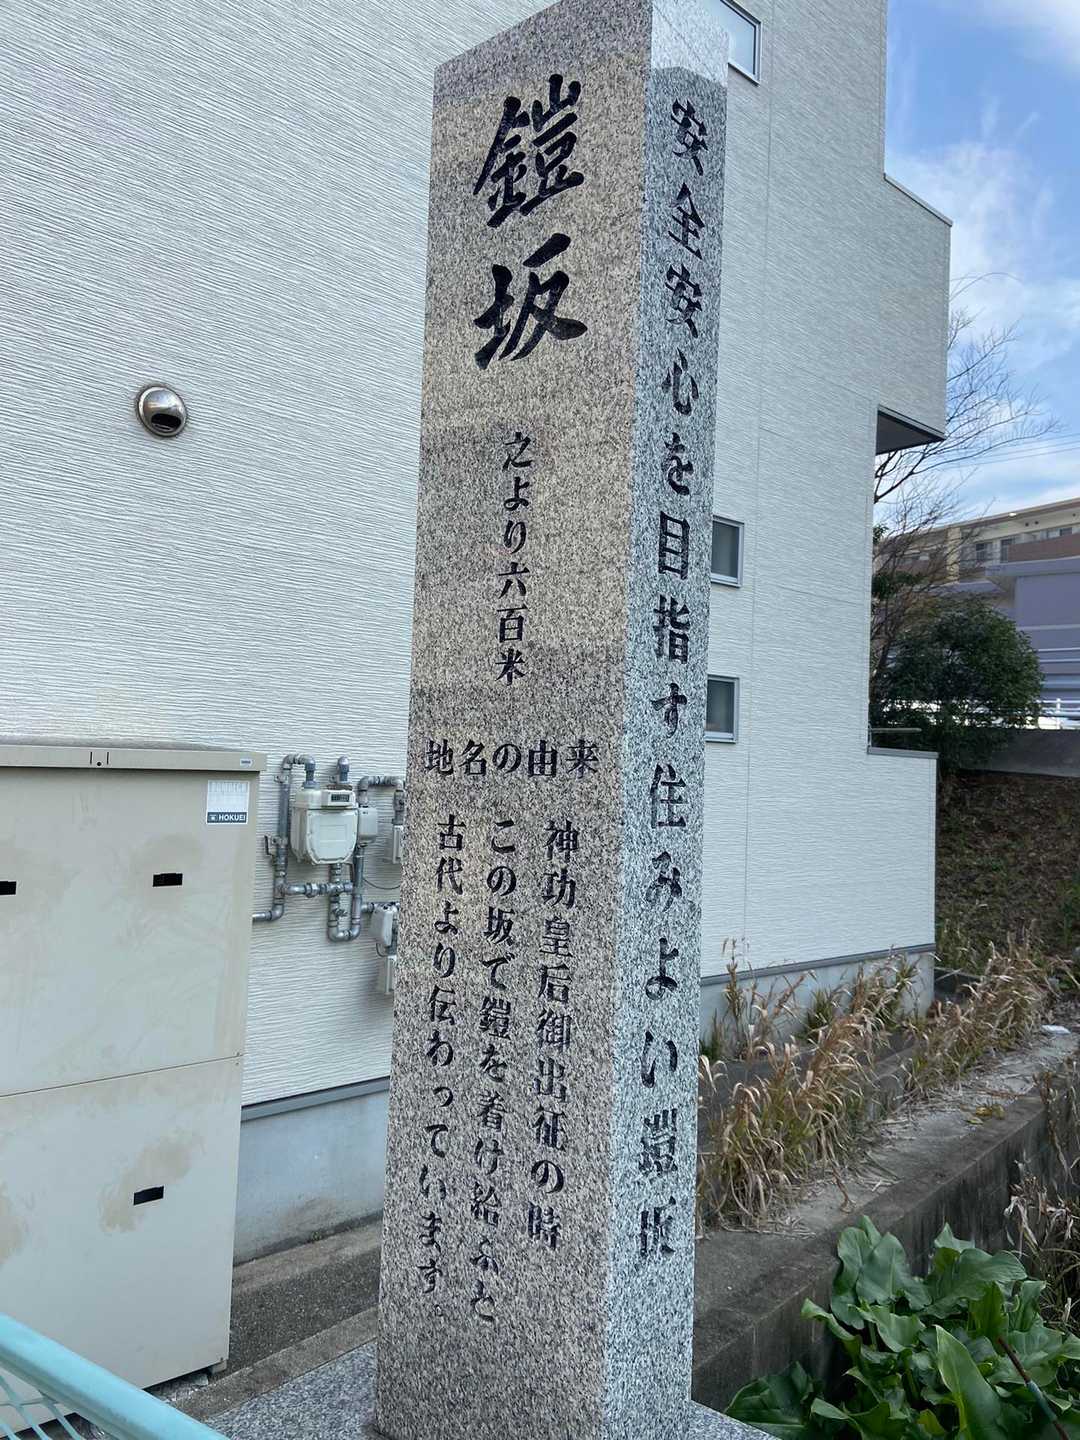 鎧坂
之より六百米
地名の由来
神功皇后御出征の時
この坂で鎧を着け給ふと
古代より伝わっています。
安全安心を目指す住みよい鎧坂
HOKUEI